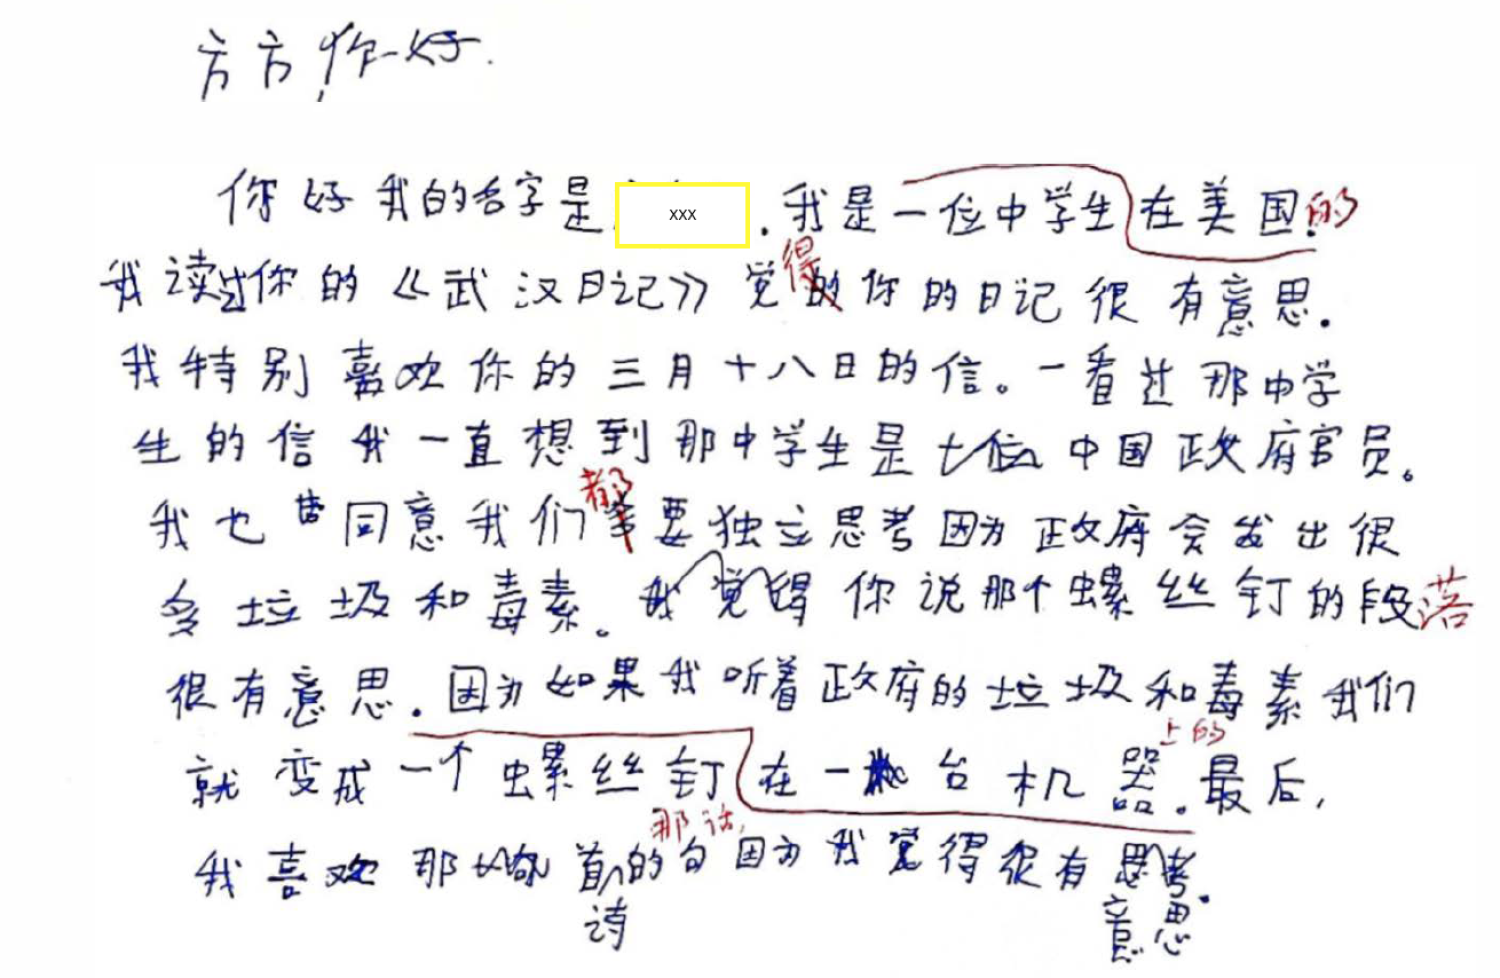 方方你好.
你好我的名字是 xxx . 我是一位中学生在美国.的
得
我读过你的《武汉日记》觉的你的日记很有意思.
我特别喜欢你的三月十八日的信。一看过那中学
生的信我一直想到那中学生是七位中国政府官员。
都
我也同意我们要独立思考因为政府会发出很
多垃圾和毒素。我觉得你说那个螺丝钉的段落
很有意思.因为如果我听着政府的垃圾和毒素我们
上的
就变成一个螺丝钉在一台机器.最后,
那话,
我喜欢那首的句因为我觉得很有思考.
诗 意思